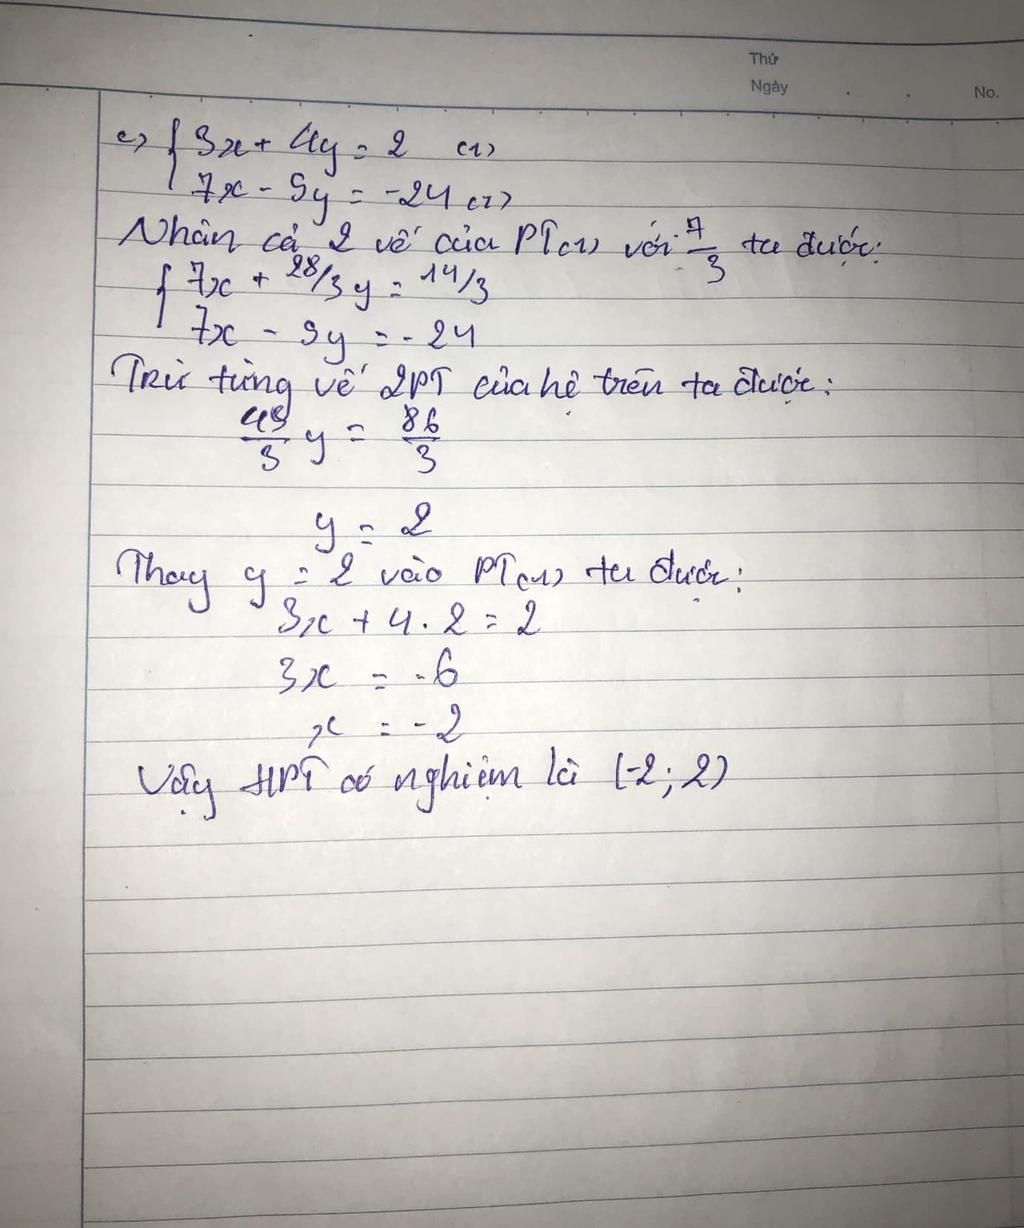 Thứ
Ngày . . No.
c) { 3x + 4y = 2 (1)
7x - 5y = -24 (2)
Nhân cả 2 vế của PT(1) với 7/3 ta được:
{ 7x + 28/3y = 14/3
7x - 5y = -24
Trừ từng vế 2PT của hệ trên ta được:
43/3 y = 86/3
y = 2
Thay y = 2 vào PT(1) ta được:
3x + 4 . 2 = 2
3x = -6
x = -2
Vậy HPT có nghiệm là (-2; 2)